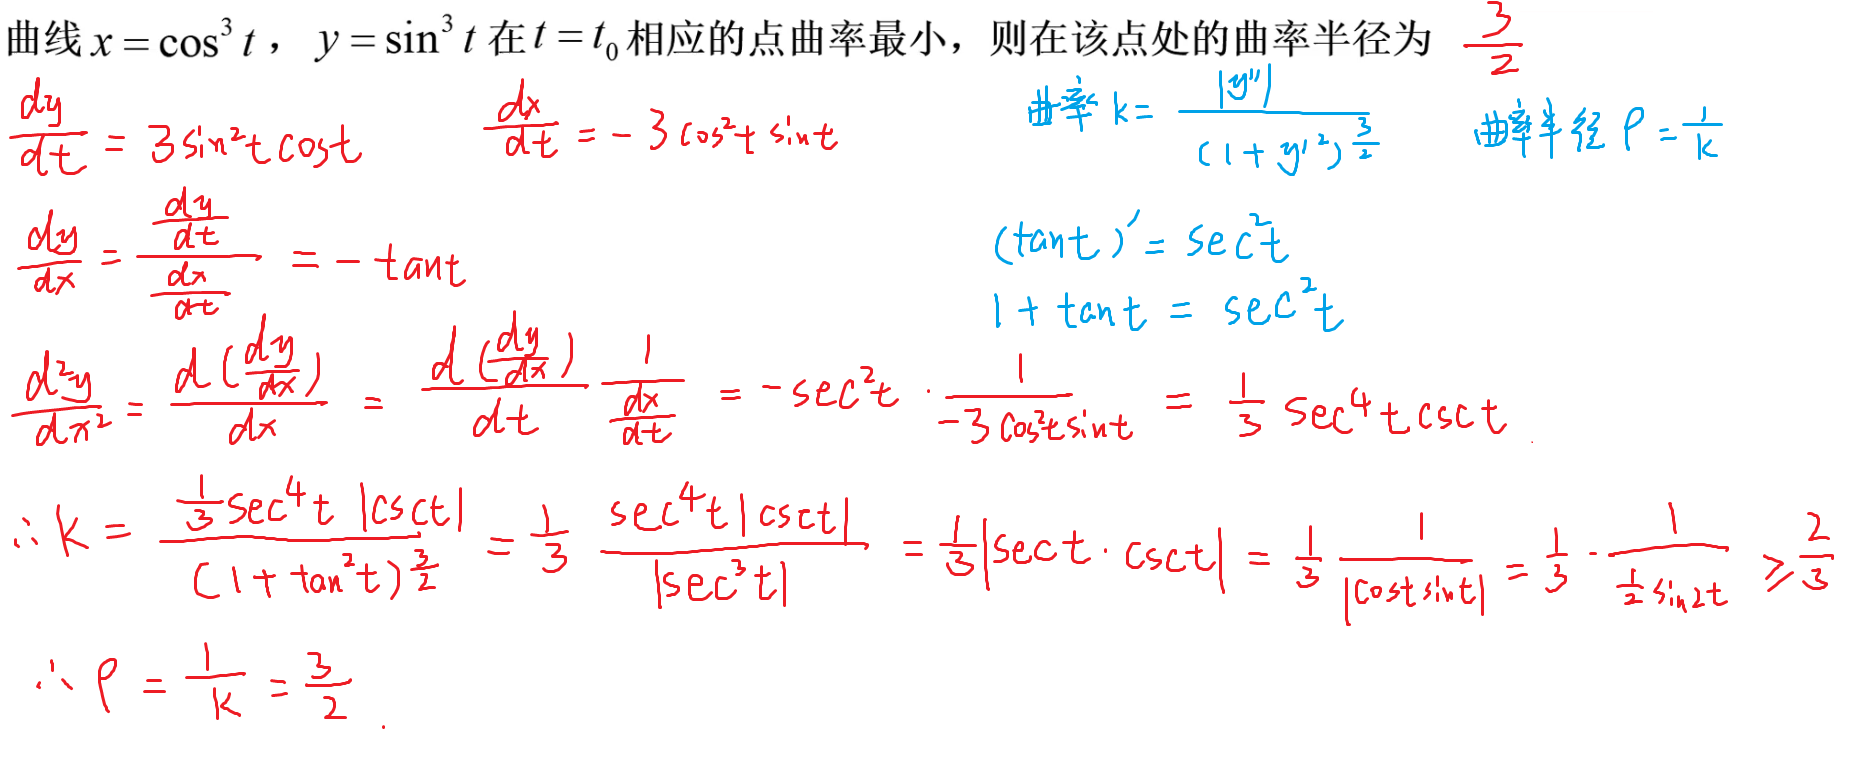 曲线 x = cos³ t ， y = sin³ t 在 t = t₀ 相应的点曲率最小，则在该点处的曲率半径为 3/2
dy/dt = 3sin²t cost    dx/dt = - 3cos²t sint
曲率 k = |y''| / (1 + y'²)^(3/2)    曲率半径 ρ = 1/k
dy/dx = (dy/dt)/(dx/dt) = - tant
(tant)' = sec²t
1 + tant = sec²t
d²y/dx² = d(dy/dx)/dx = d(dy/dx)/dt 1/(dx/dt) = -sec²t · 1/(-3cos²t sint) = 1/3 sec⁴t csct
∴ k = (1/3 sec⁴t |csct|) / (1 + tan²t)^(3/2) = 1/3 (sec⁴t |csct|) / |sec³t| = 1/3 |sect · csct| = 1/3 1/|cost sint| = 1/3 · 1/(1/2 sin2t) ⩾ 2/3
∴ ρ = 1/k = 3/2 .